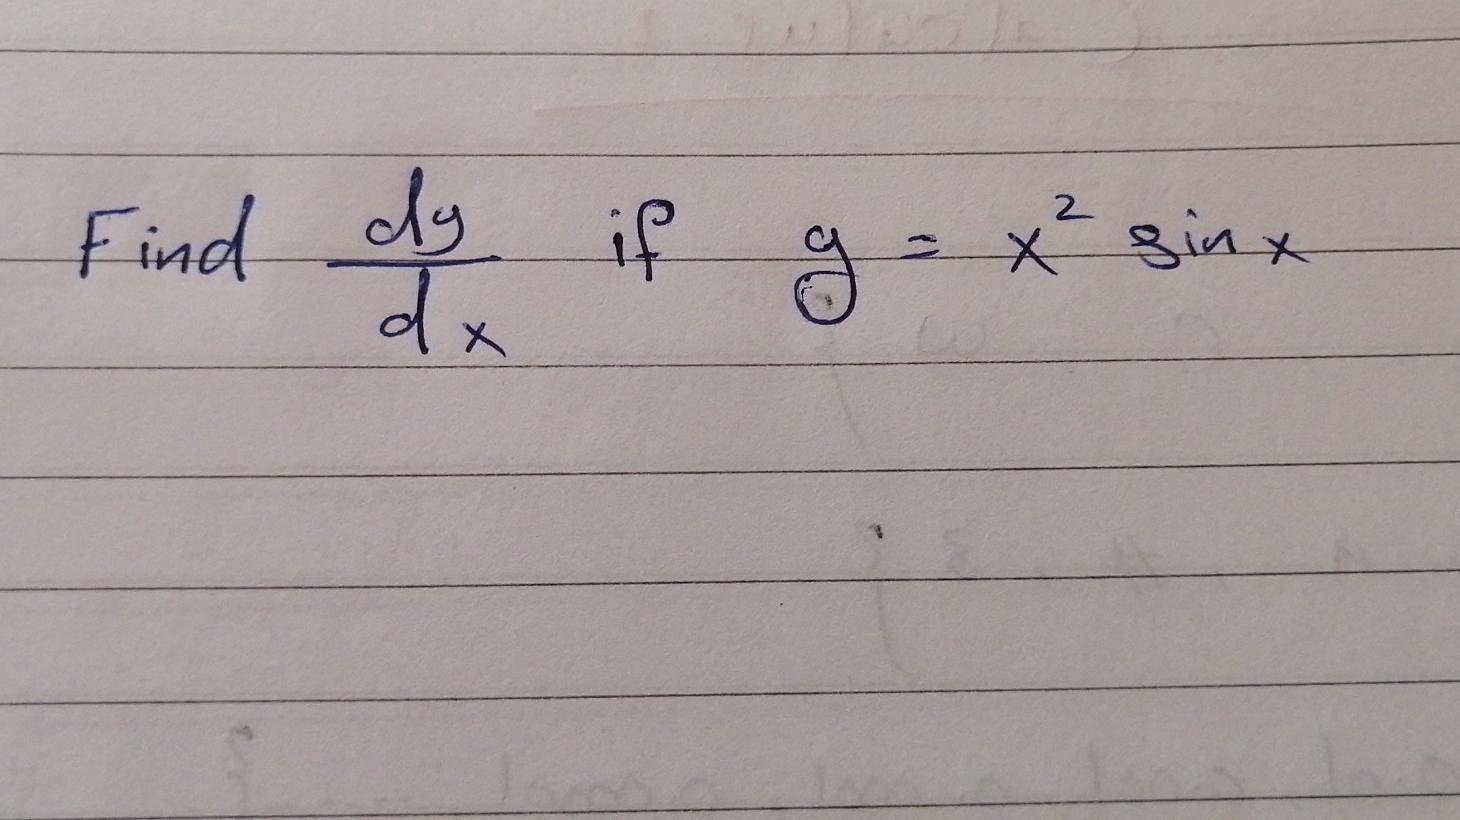 Find dy/dx if y = x² sin x